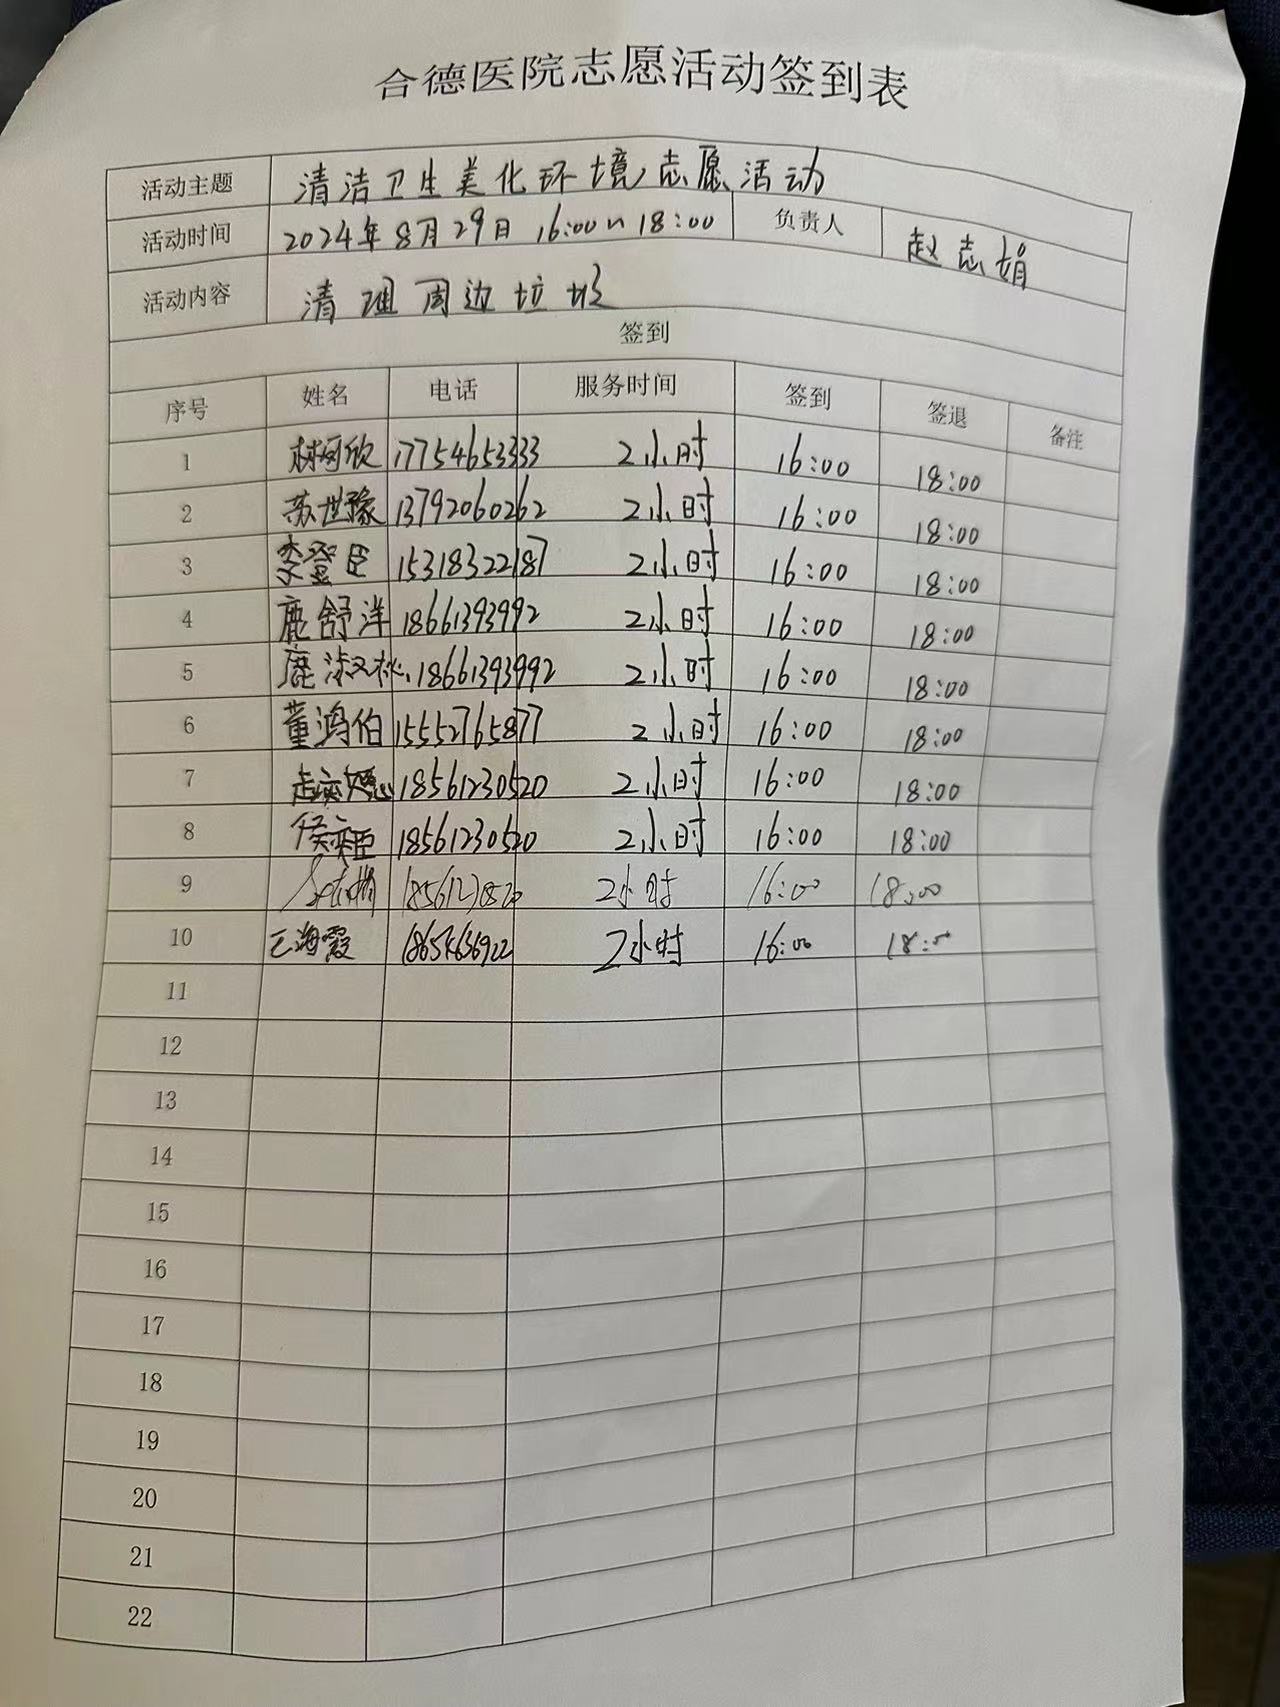 合德医院志愿活动签到表
活动主题 清洁卫生美化环境志愿活动
活动时间 2024年8月29日 16:00~18:00 负责人 赵志娟
活动内容 清理周边垃圾
签到
序号 姓名 电话 服务时间 签到 签退 备注
1 林可欣 17754653333 2小时 16:00 18:00
2 苏世豫 13792060262 2小时 16:00 18:00
3 李登臣 15318322187 2小时 16:00 18:00
4 鹿舒洋 18661393992 2小时 16:00 18:00
5 鹿淑桃 18661393992 2小时 16:00 18:00
6 董鸿伯 15552765877 2小时 16:00 18:00
7 18561230520 2小时 16:00 18:00
8 侯奕臣 18561230520 2小时 16:00 18:00
9 18561230520 2小时 16:00 18:00
10 王海霞 18654636922 2小时 16:00 18:00
11
12
13
14
15
16
17
18
19
20
21
22